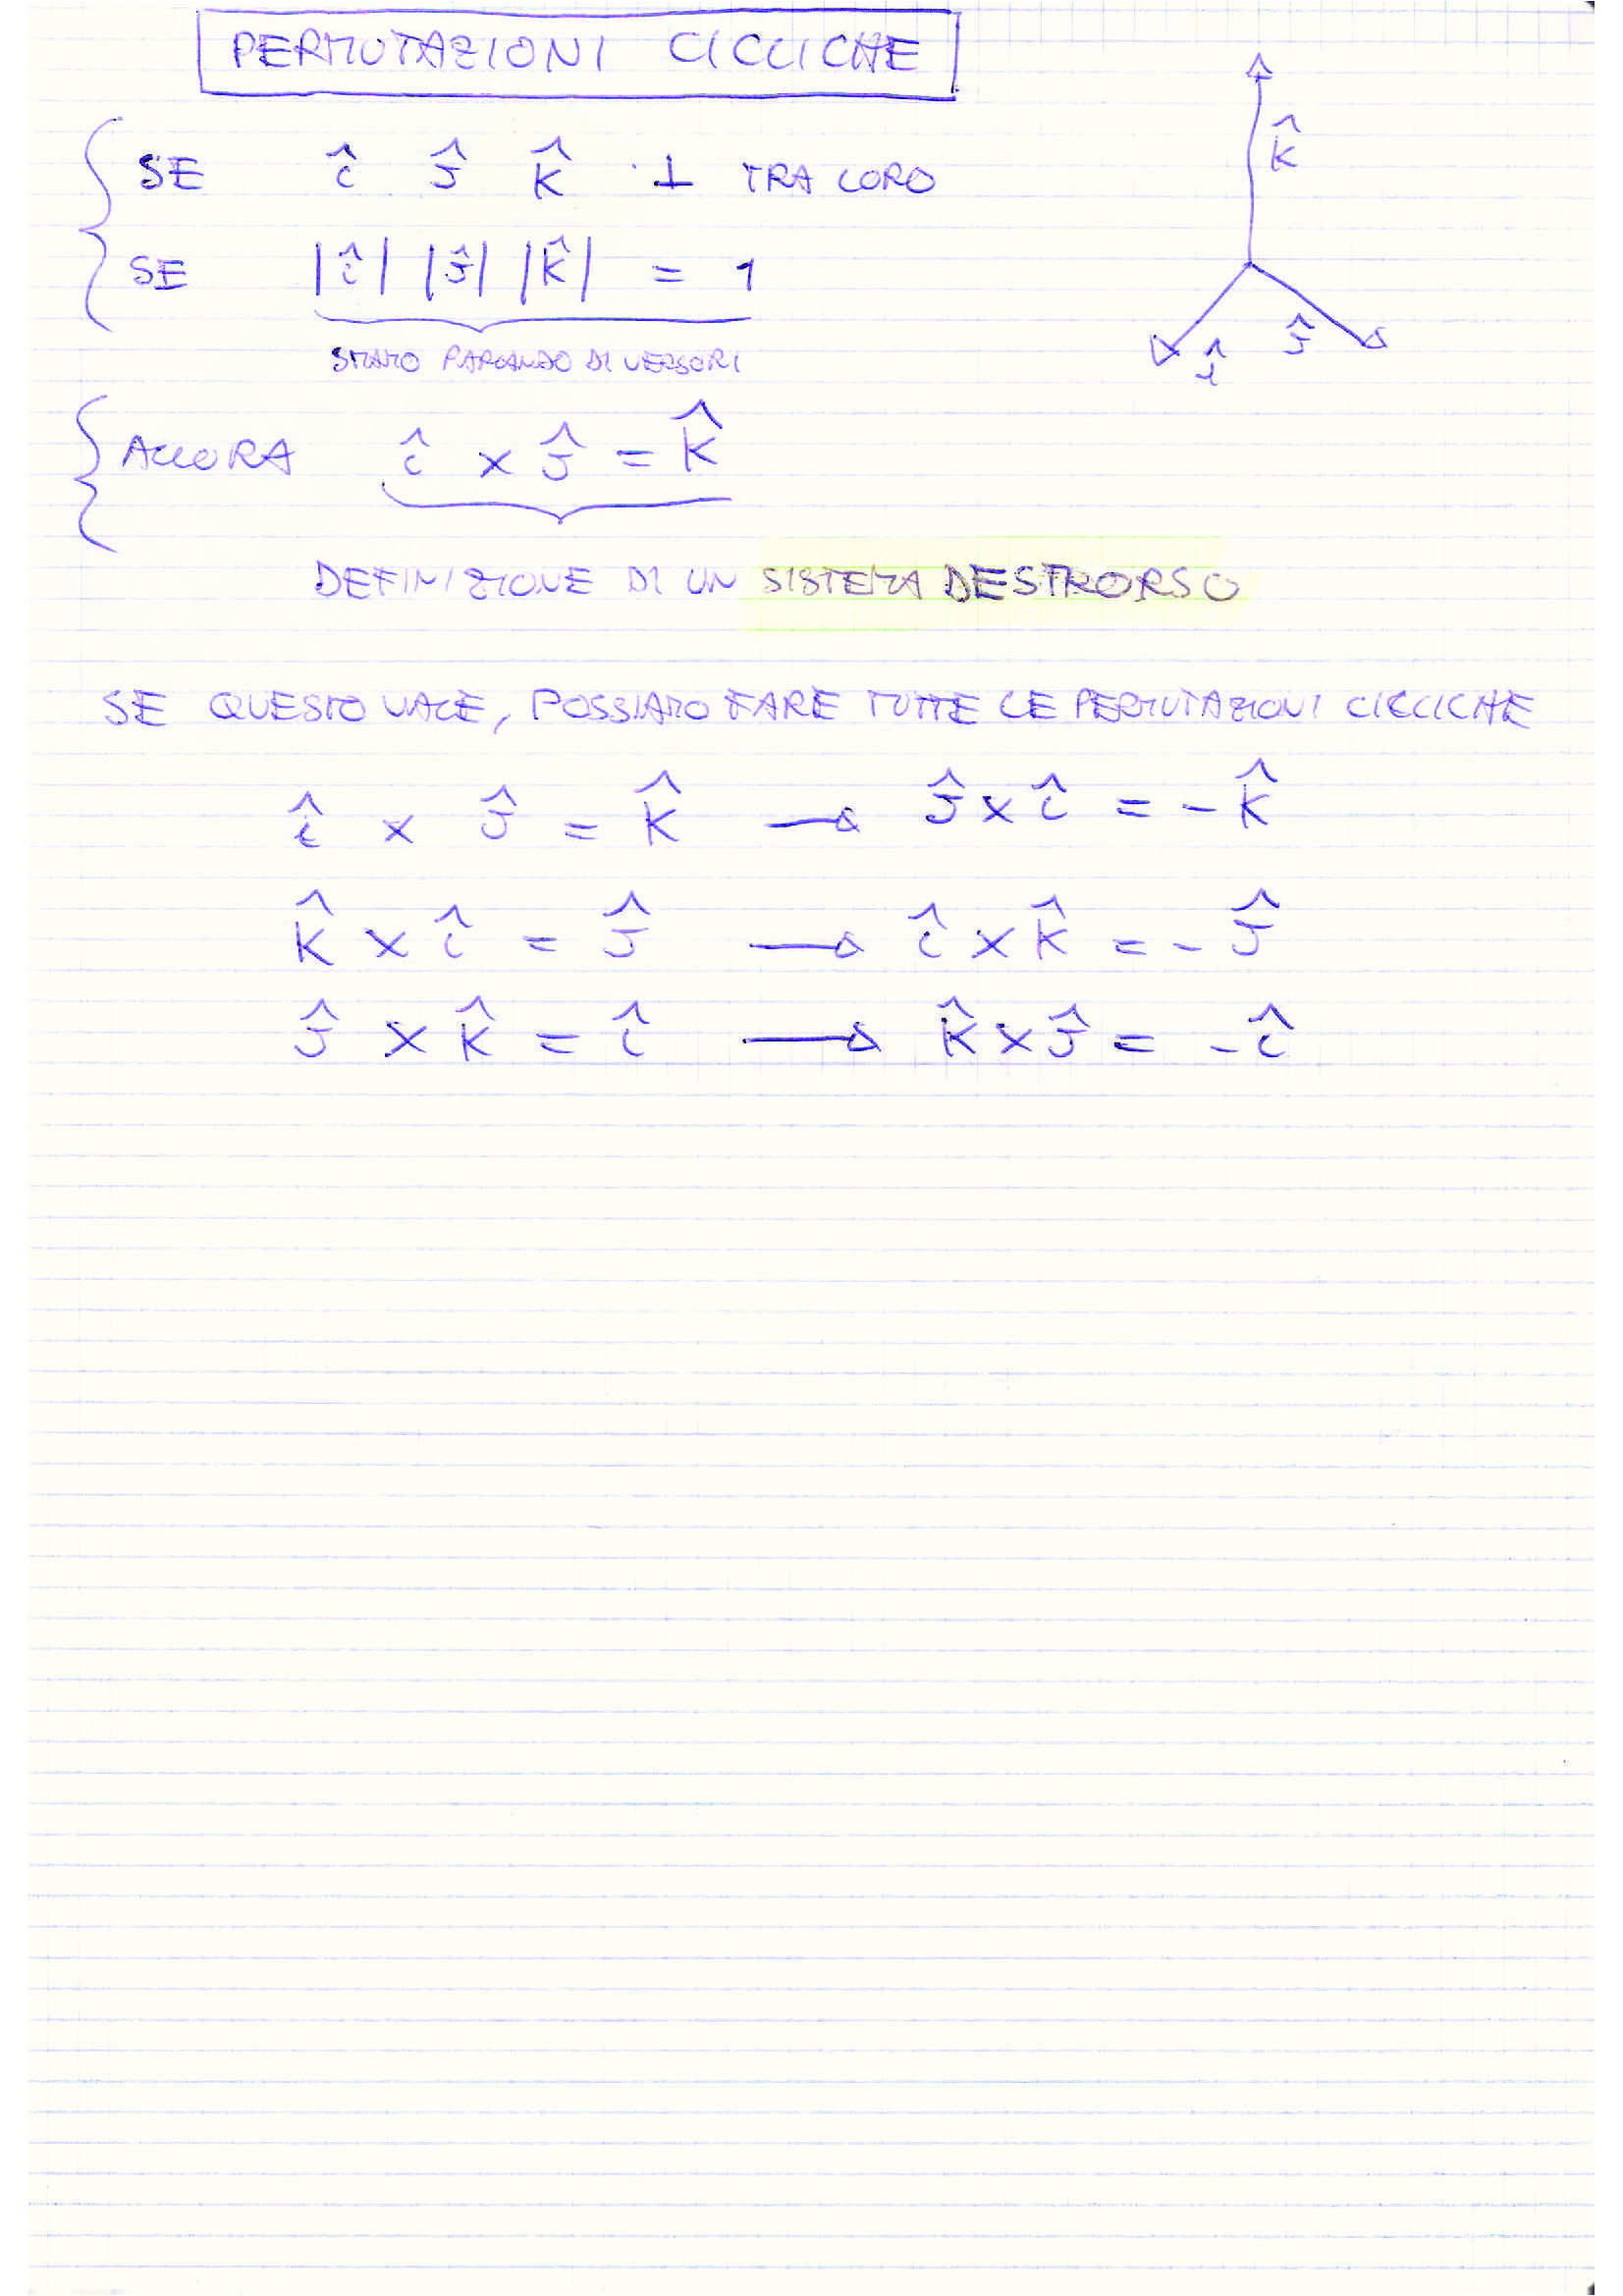 PERMUTAZIONI CICLICHE
SE î ĵ k̂ ⊥ TRA LORO
SE |î| |ĵ| |k̂| = 1
STIAMO PARLANDO DI VERSORI
k̂
î ĵ
ALLORA î × ĵ = k̂
DEFINIZIONE DI UN SISTEMA DESTRORSO
SE QUESTO VALE, POSSIAMO FARE TUTTE LE PERMUTAZIONI CICLICHE
î × ĵ = k̂ → ĵ × î = - k̂
k̂ × î = ĵ → î × k̂ = - ĵ
ĵ × k̂ = î → k̂ × ĵ = - î